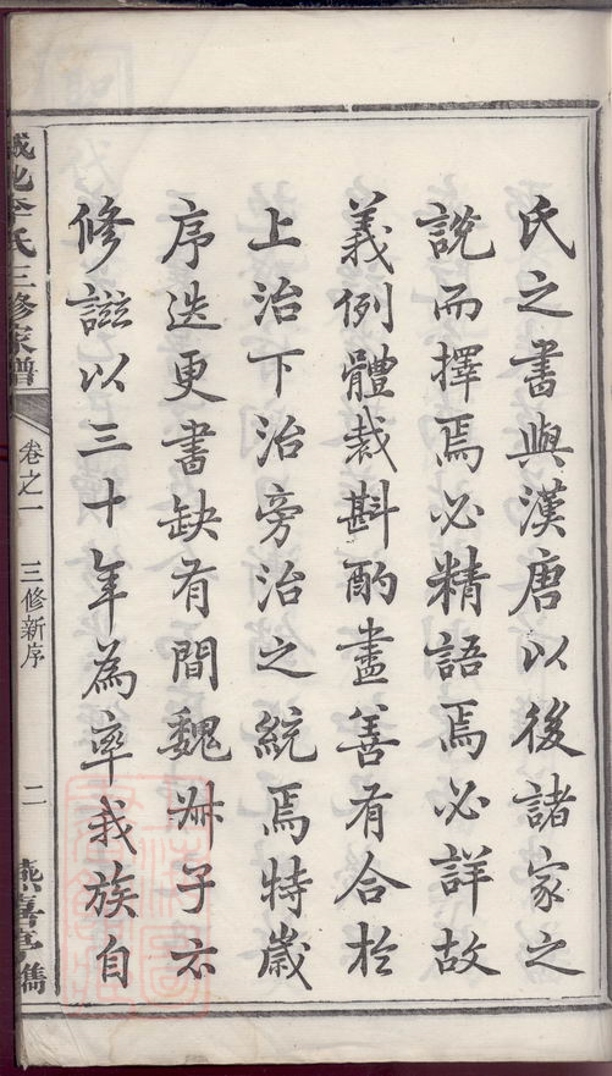 氏之書與漢唐以後諸家之
說而擇焉必精語焉必詳故
義例體裁斟酌盡善有合於
上治下治旁治之統焉特歲
序迭更書缺有間魏叔子亦
修譜以三十年為率我族自
城北李氏三修家譜
卷之一
三修新序
二
燕喜亭鐫